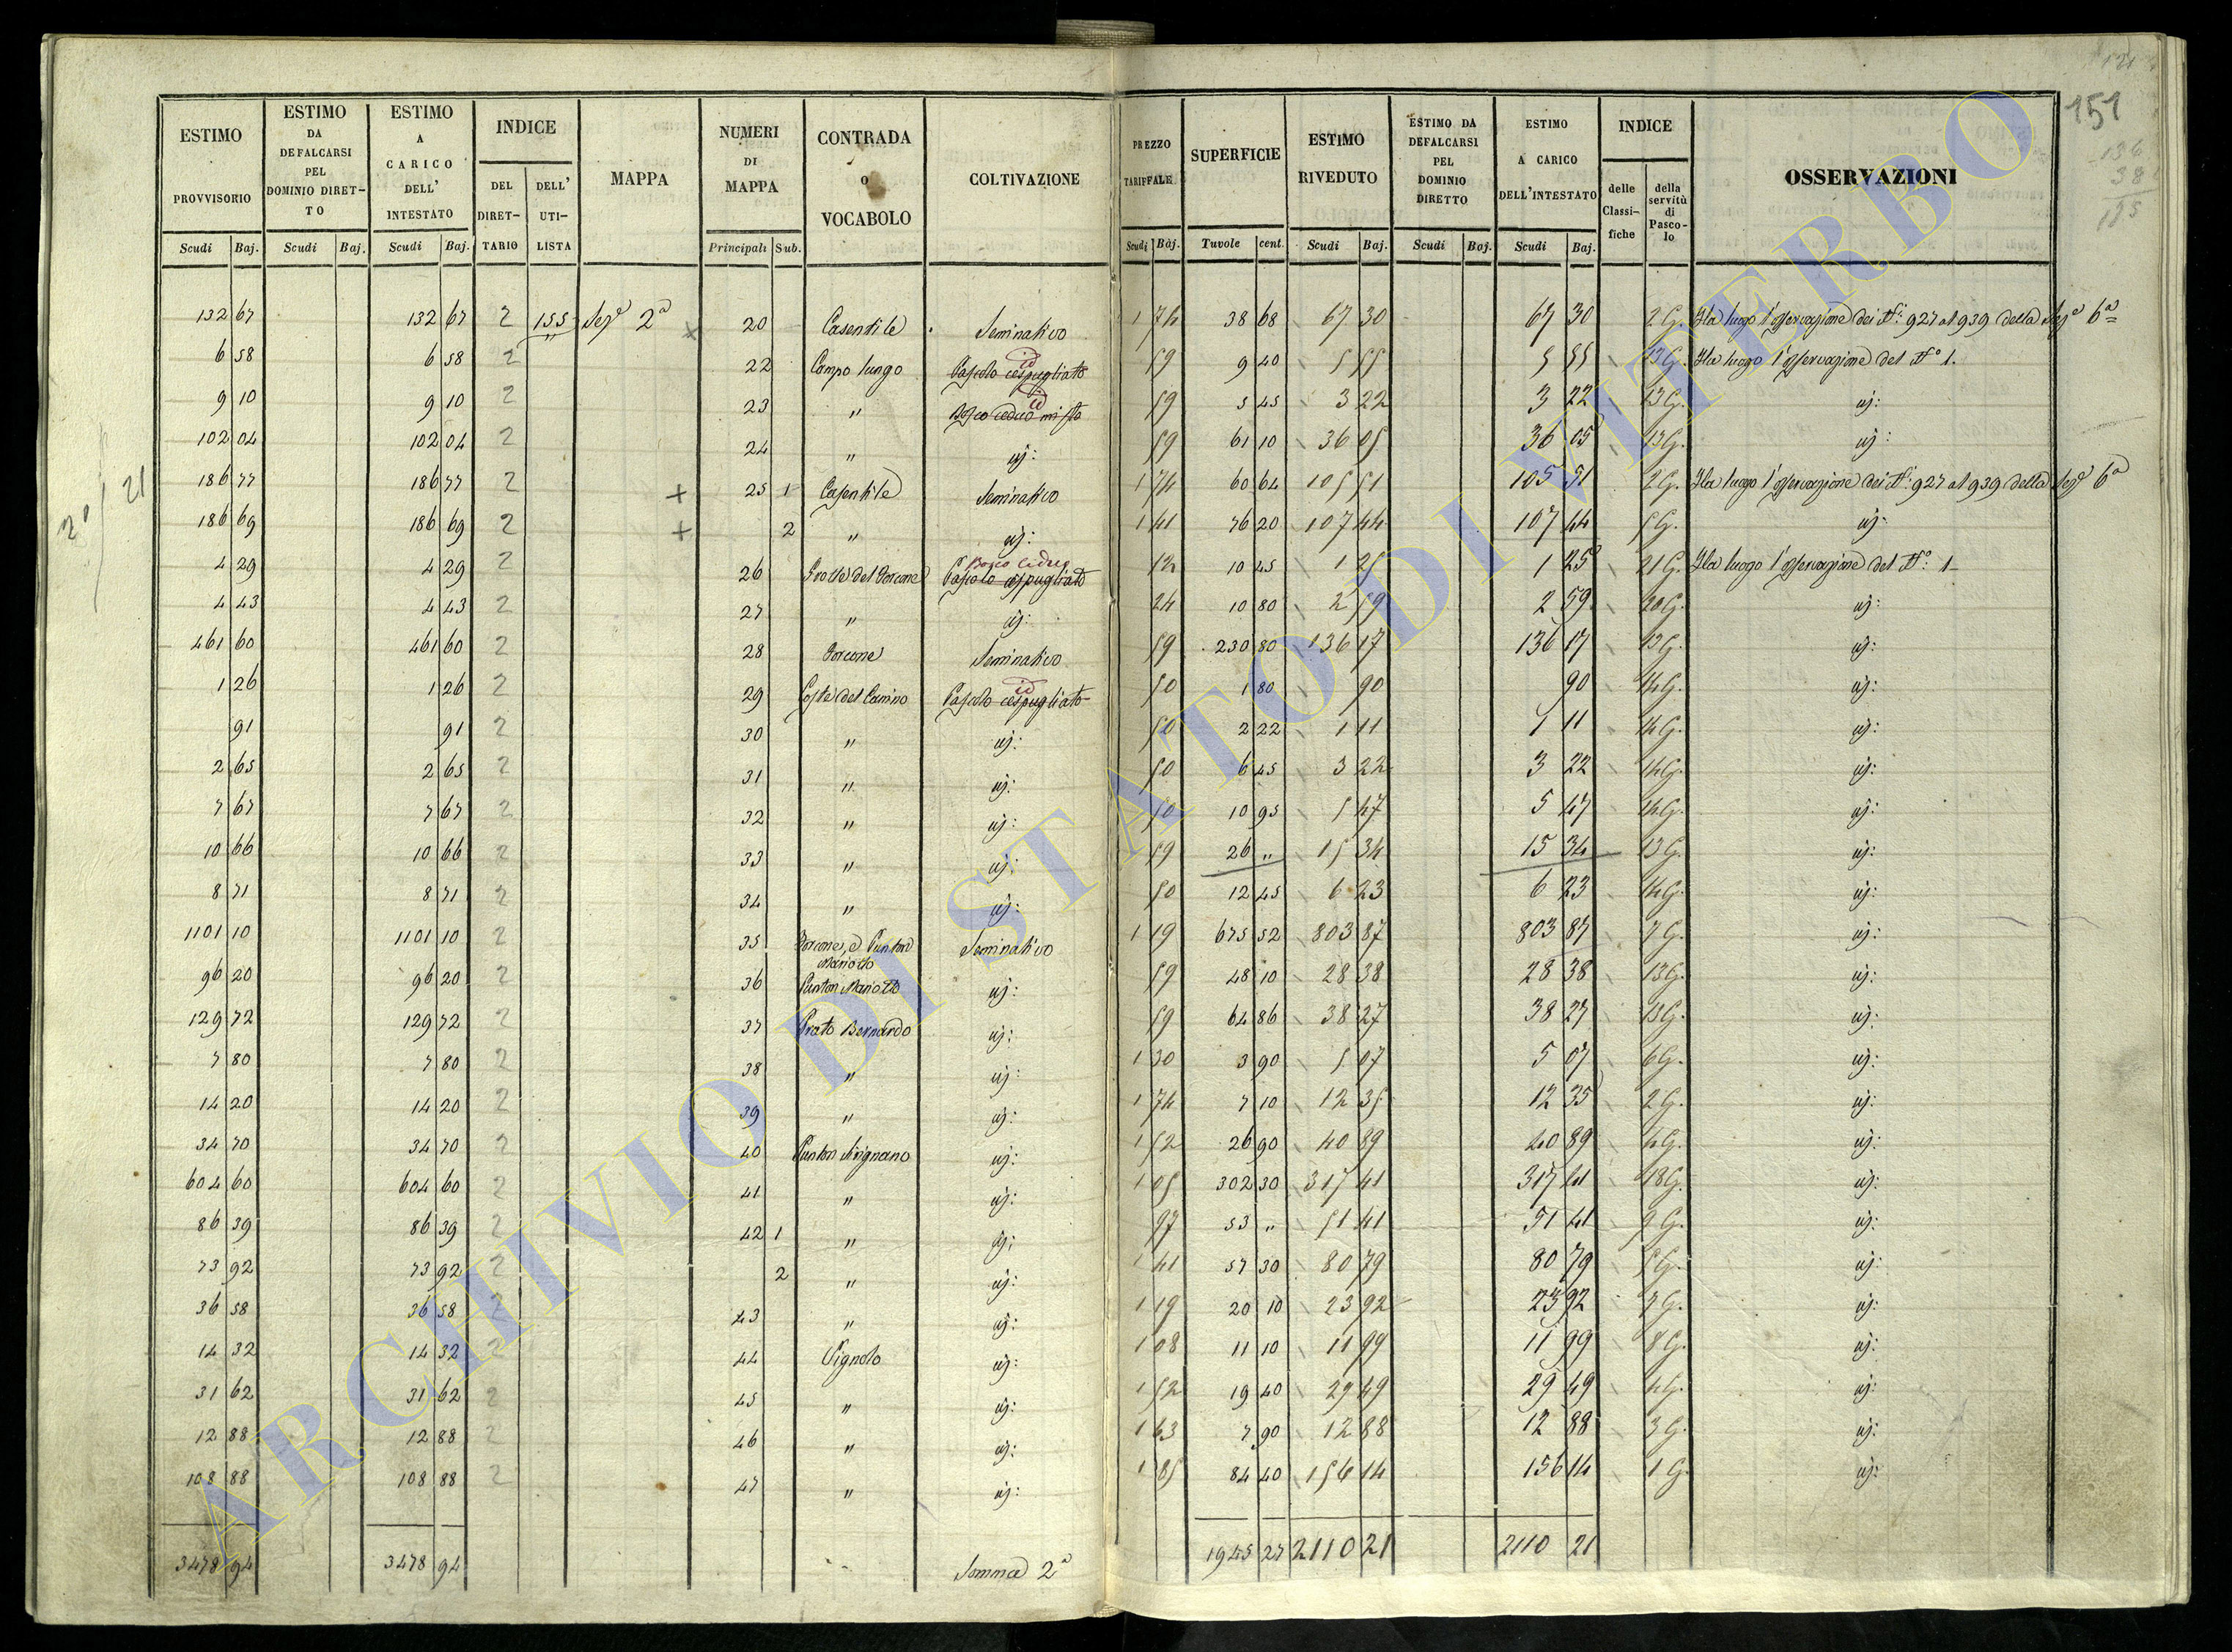 ESTIMO PROVVISORIO | ESTIMO DA DEFALCARSI PEL DOMINIO DIRETTO | ESTIMO A CARICO DELL' INTESTATO | INDICE DEL DIRETTARIO | DELL' UTILISTA | MAPPA | NUMERI DI MAPPA | CONTRADA o VOCABOLO | COLTIVAZIONE | PREZZO TARIFFALE | SUPERFICIE | ESTIMO RIVEDUTO | ESTIMO DA DEFALCARSI PEL DOMINIO DIRETTO | ESTIMO A CARICO DELL'INTESTATO | INDICE delle Classifiche | della servitù di Pascolo | OSSERVAZIONI | 151
Scudi Baj. | Scudi Baj. | Scudi Baj. | Principali Sub. | Scudi Baj. | Tavole cent. | Scudi Baj. | Scudi Baj. | Scudi Baj.
132 67 | 132 67 | 2 | 155 | Sezᵉ 2ª | 20 | Casentile | Seminativo | 1 74 | 38 68 | 67 30 | 67 30 | 2 G. | Ha luogo l'osservazione dei Nⁱ: 927 al 939 della Sezᵉ 6ª
6 58 | 6 58 | 2 | 22 | Campo lungo | Pascolo cespugliato id | 59 | 9 40 | 5 55 | 5 55 | 13 G. | Ha luogo l'osservazione del N° 1.
9 10 | 9 10 | 2 | 23 | " | Bosco ceduo misto id | 59 | 5 45 | 3 22 | 3 22 | 13 G. | id:
102 04 | 102 04 | 2 | 24 | " | id: | 59 | 61 10 | 36 05 | 36 05 | 13 G. | id:
186 77 | 186 77 | 2 | 25 1 | Casentile | Seminativo | 1 74 | 60 64 | 105 51 | 105 51 | 2 G. | Ha luogo l'osservazione dei Nⁱ: 927 al 939 della Sezᵉ 6ª
186 69 | 186 69 | 2 | 2 | " | id: | 1 41 | 76 20 | 107 44 | 107 44 | 5 G. | id:
4 29 | 4 29 | 2 | 26 | Grotte del Porcone | Pascolo cespugliato Bosco Ceduo | 12 | 10 45 | 1 25 | 1 25 | 21 G. | Ha luogo l'osservazione del N°: 1
4 43 | 4 43 | 2 | 27 | " | id: | 24 | 10 80 | 2 59 | 2 59 | 20 G. | id:
461 60 | 461 60 | 2 | 28 | Porcone | Seminativo | 59 | 230 80 | 136 17 | 136 17 | 13 G. | id:
1 26 | 1 26 | 2 | 29 | Coste del Camino | Pascolo cespugliato id | 50 | 1 80 | 90 | 90 | 14 G. | id:
91 | 91 | 2 | 30 | " | id: | 50 | 2 22 | 1 11 | 1 11 | 14 G. | id:
2 65 | 2 65 | 2 | 31 | " | id: | 50 | 6 45 | 3 22 | 3 22 | 14 G. | id:
7 67 | 7 67 | 2 | 32 | " | id: | 50 | 10 95 | 5 47 | 5 47 | 14 G. | id:
10 66 | 10 66 | 2 | 33 | " | id: | 59 | 26 " | 15 34 | 15 34 | 13 G. | id:
8 71 | 8 71 | 2 | 34 | " | id: | 50 | 12 45 | 6 23 | 6 23 | 14 G. | id:
1101 10 | 1101 10 | 2 | 35 | Porcone, e Punton Mariotto | Seminativo | 1 19 | 675 52 | 803 87 | 803 87 | 7 G. | id:
96 20 | 96 20 | 2 | 36 | Punton Mariotto | id: | 59 | 48 10 | 28 38 | 28 38 | 13 G. | id:
129 72 | 129 72 | 2 | 37 | Prato Bernardo | id: | 59 | 64 86 | 38 27 | 38 27 | 13 G. | id:
7 80 | 7 80 | 2 | 38 | " | id: | 1 30 | 3 90 | 5 07 | 5 07 | 6 G. | id:
14 20 | 14 20 | 2 | 39 | " | id: | 1 74 | 7 10 | 12 35 | 12 35 | 2 G. | id:
34 70 | 34 70 | 2 | 40 | Punton | id: | 1 52 | 26 90 | 40 89 | 40 89 | 4 G. | id:
604 60 | 604 60 | 2 | 41 | " | id: | 1 05 | 302 30 | 317 41 | 317 41 | 18 G. | id:
86 39 | 86 39 | 2 | 42 1 | " | id: | 97 | 53 " | 51 41 | 51 41 | 9 G. | id:
73 92 | 73 92 | 2 | 2 | " | id: | 1 41 | 57 30 | 80 79 | 80 79 | 5 G. | id:
36 58 | 36 58 | 2 | 43 | " | id: | 1 19 | 20 10 | 23 92 | 23 92 | 7 G. | id:
14 32 | 14 32 | 2 | 44 | Vignolo | id: | 1 08 | 11 10 | 11 99 | 11 99 | 8 G. | id:
31 62 | 31 62 | 2 | 45 | " | id: | 1 52 | 19 40 | 29 49 | 29 49 | 4 G. | id:
12 88 | 12 88 | 2 | 46 | " | id: | 1 63 | 7 90 | 12 88 | 12 88 | 3 G. | id:
108 88 | 108 88 | 2 | 47 | " | id: | 1 85 | 84 40 | 156 14 | 156 14 | 1 G. | id:
3478 94 | 3478 94 | Somma 2ª | 1945 27 | 2110 21 | 2110 21
ARCHIVIO DI STATO DI VITERBO